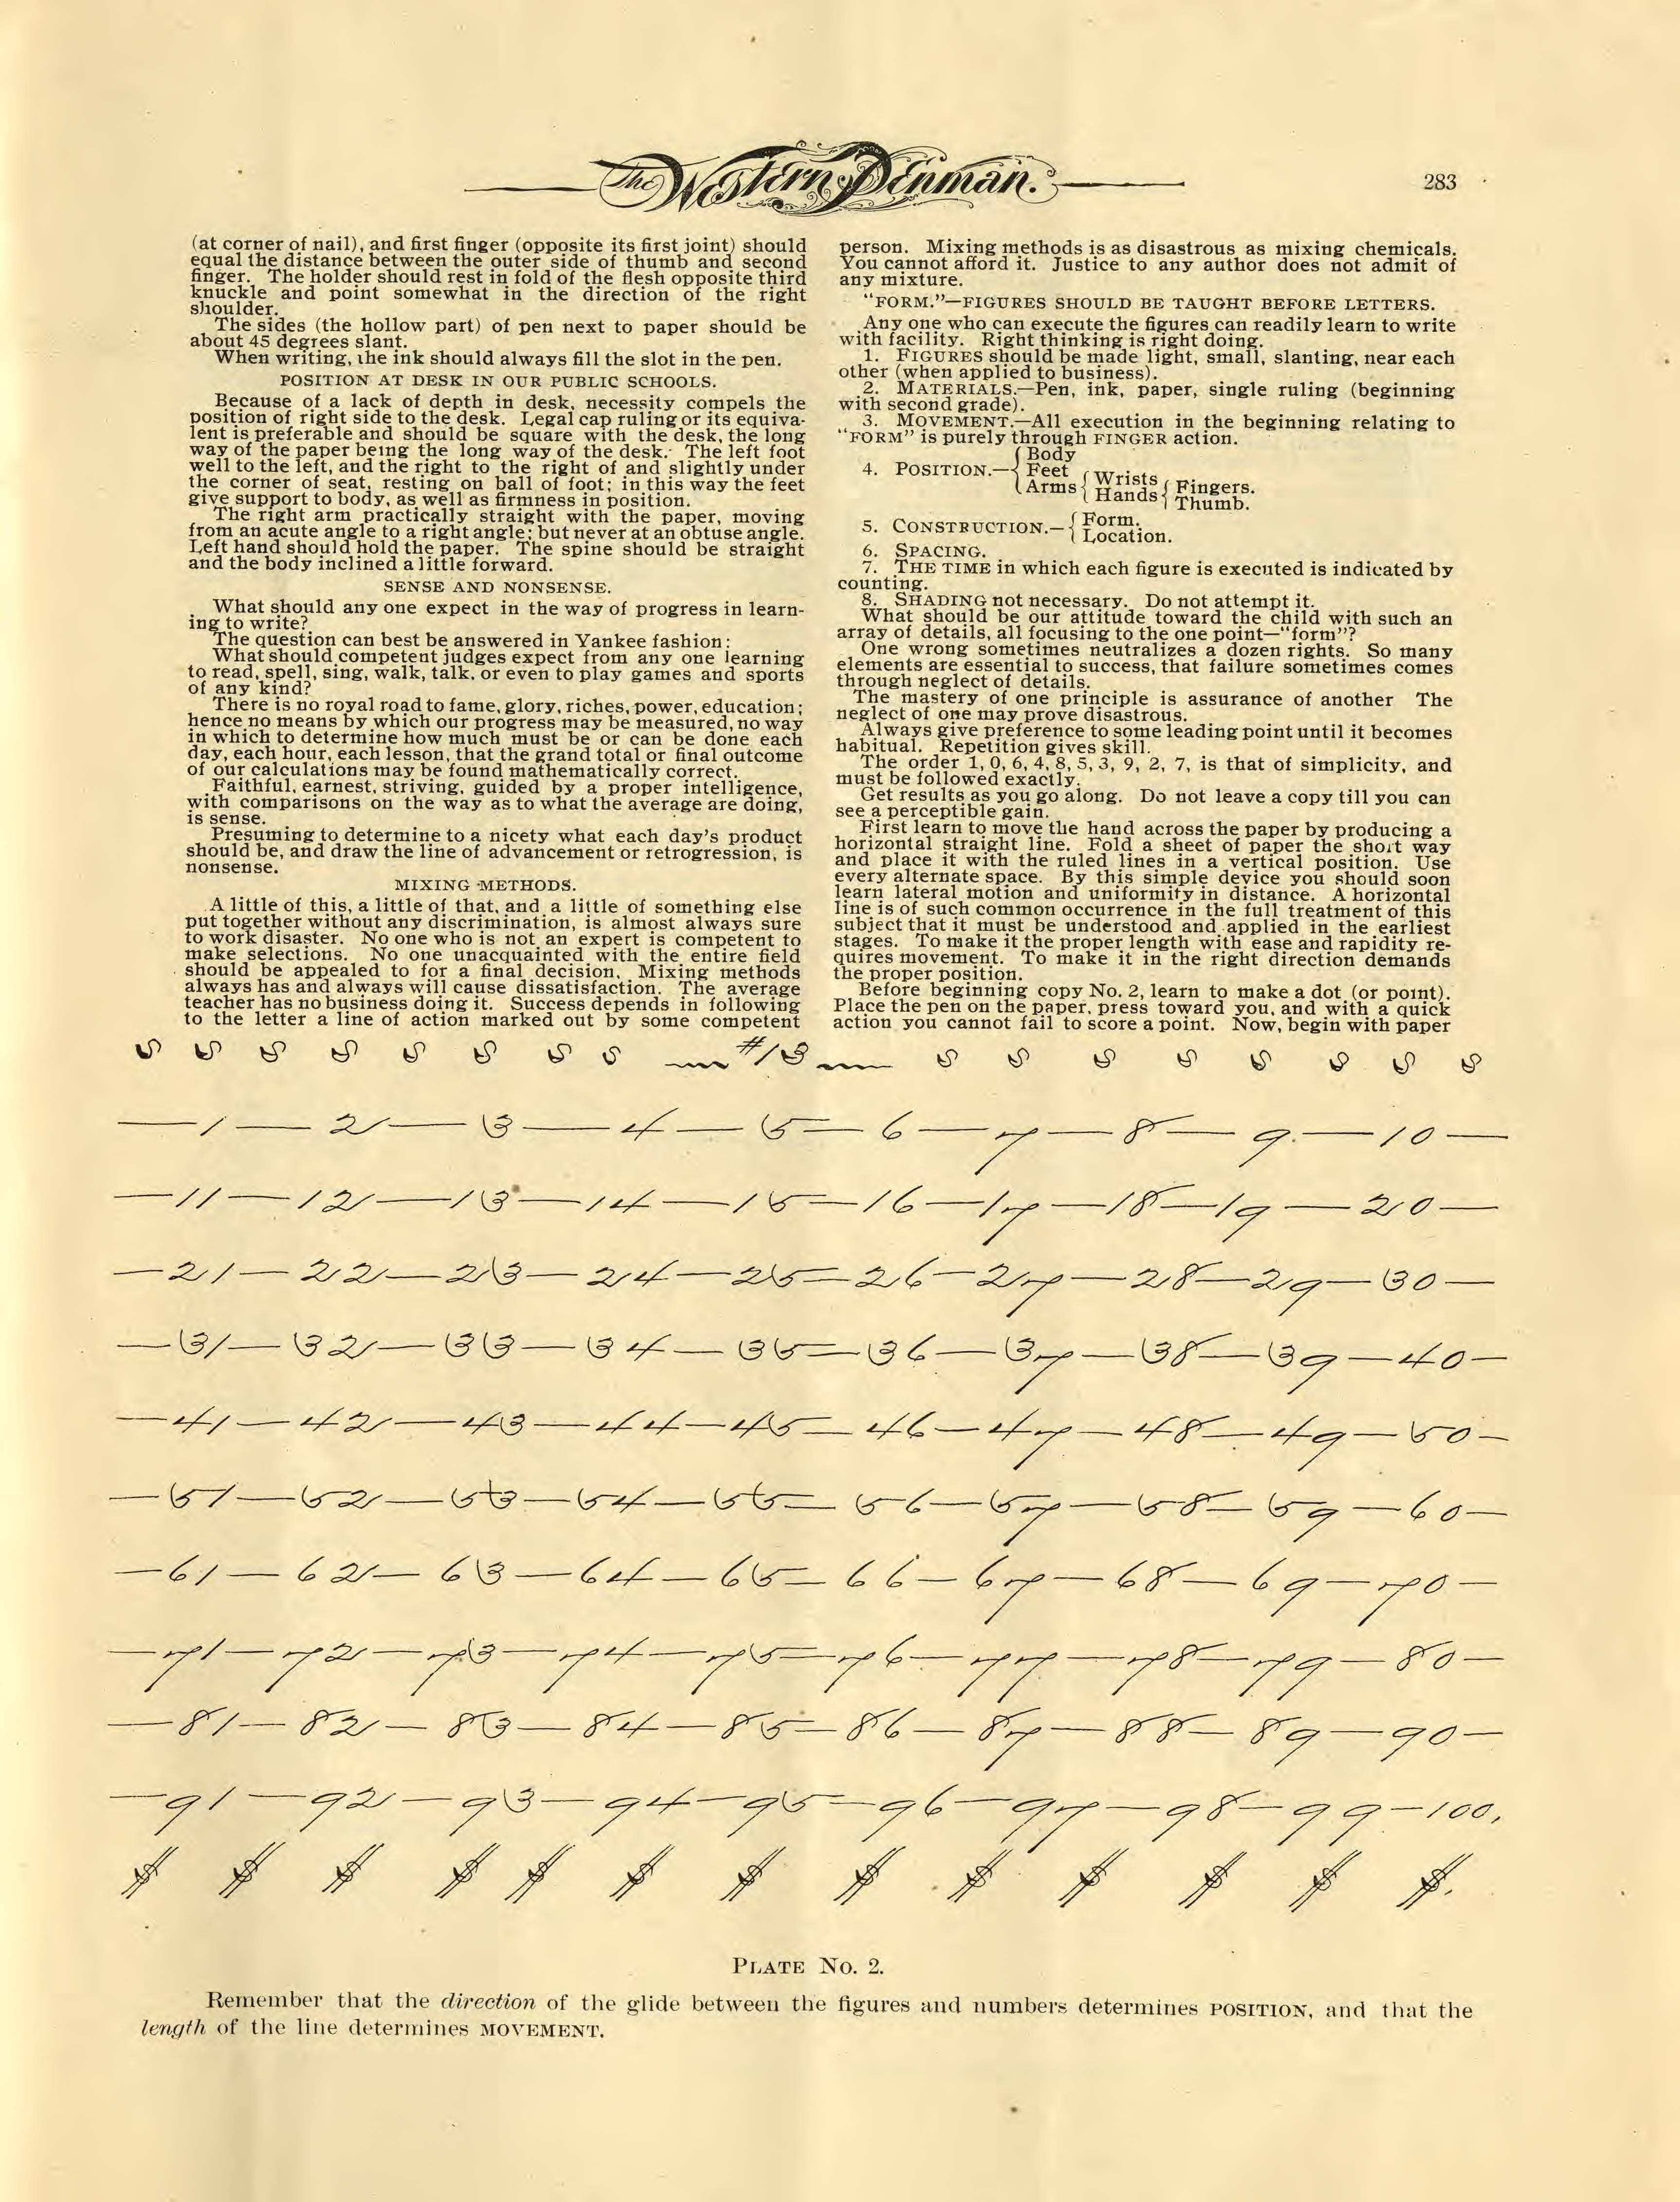 The Western Penman.
283
(at corner of nail), and first finger (opposite its first joint) should
equal the distance between the outer side of thumb and second
finger. The holder should rest in fold of the flesh opposite third
knuckle and point somewhat in the direction of the right
shoulder.
The sides (the hollow part) of pen next to paper should be
about 45 degrees slant.
When writing, the ink should always fill the slot in the pen.
POSITION AT DESK IN OUR PUBLIC SCHOOLS.
Because of a lack of depth in desk, necessity compels the
position of right side to the desk. Legal cap ruling or its equiva-
lent is preferable and should be square with the desk, the long
way of the paper being the long way of the desk. The left foot
well to the left, and the right to the right of and slightly under
the corner of seat, resting on ball of foot; in this way the feet
give support to body, as well as firmness in position.
The right arm practically straight with the paper, moving
from an acute angle to a right angle; but never at an obtuse angle.
Left hand should hold the paper. The spine should be straight
and the body inclined a little forward.
SENSE AND NONSENSE.
What should any one expect in the way of progress in learn-
ing to write?
The question can best be answered in Yankee fashion:
What should competent judges expect from any one learning
to read, spell, sing, walk, talk, or even to play games and sports
of any kind?
There is no royal road to fame, glory, riches, power, education;
hence no means by which our progress may be measured, no way
in which to determine how much must be or can be done each
day, each hour, each lesson, that the grand total or final outcome
of our calculations may be found mathematically correct.
Faithful, earnest, striving, guided by a proper intelligence,
with comparisons on the way as to what the average are doing,
is sense.
Presuming to determine to a nicety what each day's product
should be, and draw the line of advancement or retrogression, is
nonsense.
MIXING METHODS.
A little of this, a little of that, and a little of something else
put together without any discrimination, is almost always sure
to work disaster. No one who is not an expert is competent to
make selections. No one unacquainted with the entire field
should be appealed to for a final decision. Mixing methods
always has and always will cause dissatisfaction. The average
teacher has no business doing it. Success depends in following
to the letter a line of action marked out by some competent
person. Mixing methods is as disastrous as mixing chemicals.
You cannot afford it. Justice to any author does not admit of
any mixture.
"FORM."—FIGURES SHOULD BE TAUGHT BEFORE LETTERS.
Any one who can execute the figures can readily learn to write
with facility. Right thinking is right doing.
1. FIGURES should be made light, small, slanting, near each
other (when applied to business).
2. MATERIALS.—Pen, ink, paper, single ruling (beginning
with second grade).
3. MOVEMENT.—All execution in the beginning relating to
"FORM" is purely through FINGER action.
4. POSITION.— { Body
Feet
Arms { Wrists
Hands { Fingers.
Thumb.
5. CONSTRUCTION.— { Form.
Location.
6. SPACING.
7. THE TIME in which each figure is executed is indicated by
counting.
8. SHADING not necessary. Do not attempt it.
What should be our attitude toward the child with such an
array of details, all focusing to the one point—"form"?
One wrong sometimes neutralizes a dozen rights. So many
elements are essential to success, that failure sometimes comes
through neglect of details.
The mastery of one principle is assurance of another The
neglect of one may prove disastrous.
Always give preference to some leading point until it becomes
habitual. Repetition gives skill.
The order 1, 0, 6, 4, 8, 5, 3, 9, 2, 7, is that of simplicity, and
must be followed exactly.
Get results as you go along. Do not leave a copy till you can
see a perceptible gain.
First learn to move the hand across the paper by producing a
horizontal straight line. Fold a sheet of paper the short way
and place it with the ruled lines in a vertical position. Use
every alternate space. By this simple device you should soon
learn lateral motion and uniformity in distance. A horizontal
line is of such common occurrence in the full treatment of this
subject that it must be understood and applied in the earliest
stages. To make it the proper length with ease and rapidity re-
quires movement. To make it in the right direction demands
the proper position.
Before beginning copy No. 2, learn to make a dot (or point).
Place the pen on the paper, press toward you, and with a quick
action you cannot fail to score a point. Now, begin with paper
#13
—1—2—3—4—5—6—7—8—9—10—
—11—12—13—14—15—16—17—18—19—20—
—21—22—23—24—25—26—27—28—29—30—
—31—32—33—34—35—36—37—38—39—40—
—41—42—43—44—45—46—47—48—49—50—
—51—52—53—54—55—56—57—58—59—60—
—61—62—63—64—65—66—67—68—69—70—
—71—72—73—74—75—76—77—78—79—80—
—81—82—83—84—85—86—87—88—89—90—
—91—92—93—94—95—96—97—98—99—100.
$ $ $ $ $ $ $ $ $ $ $ $ $.
PLATE No. 2.
Remember that the direction of the glide between the figures and numbers determines POSITION, and that the
length of the line determines MOVEMENT.